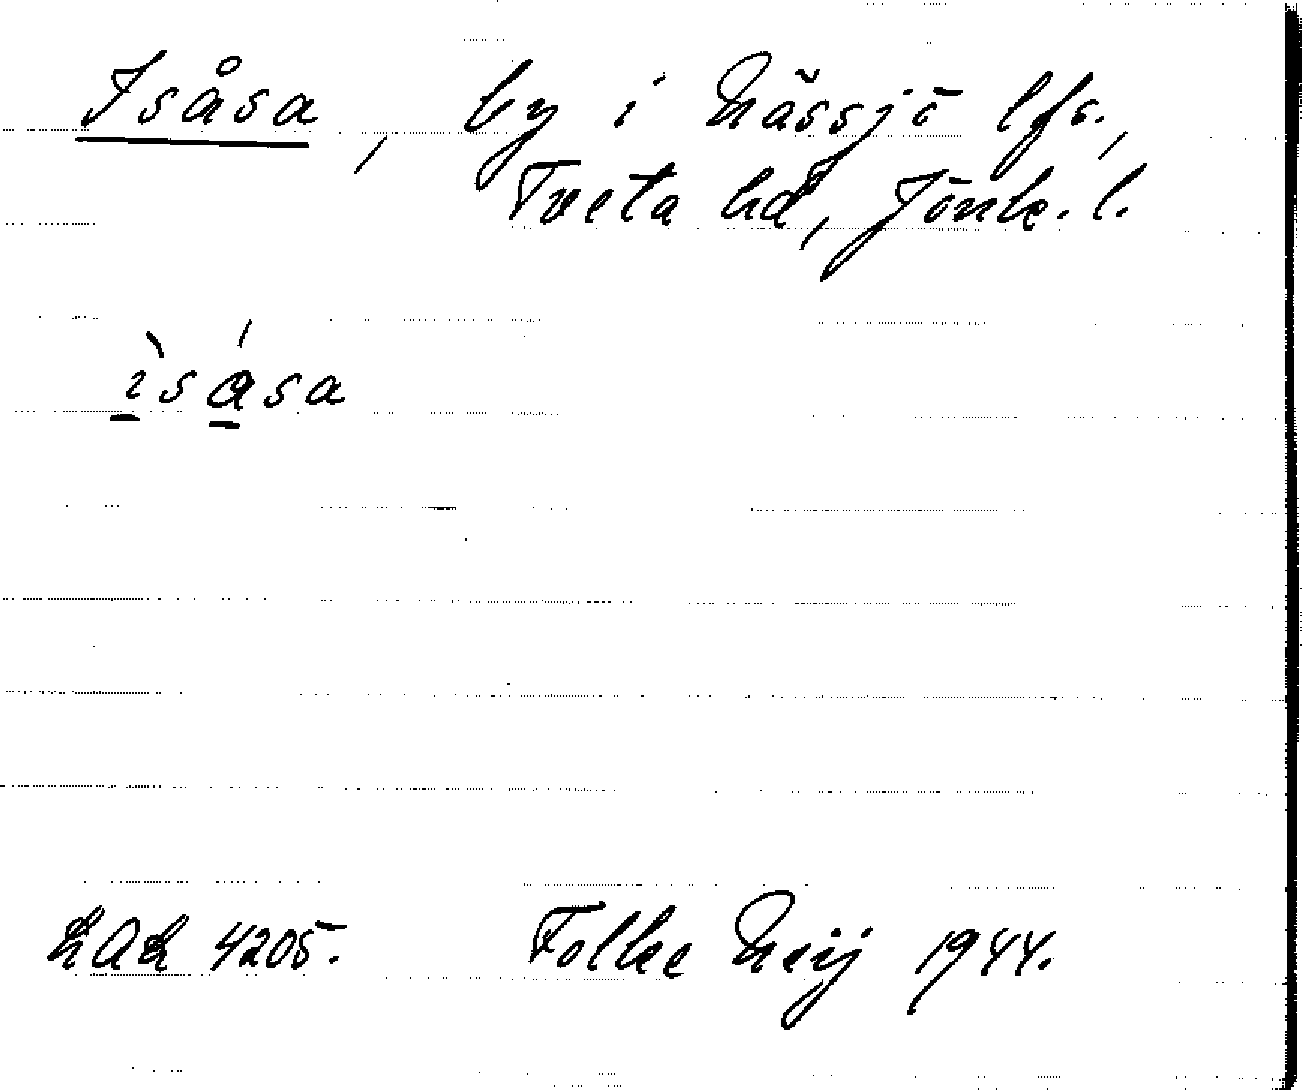 Isåsa, by i Nässjö lfs.,
Tveta hd, Jönk. l.
ìsása
4205. Folke Neij 1944.